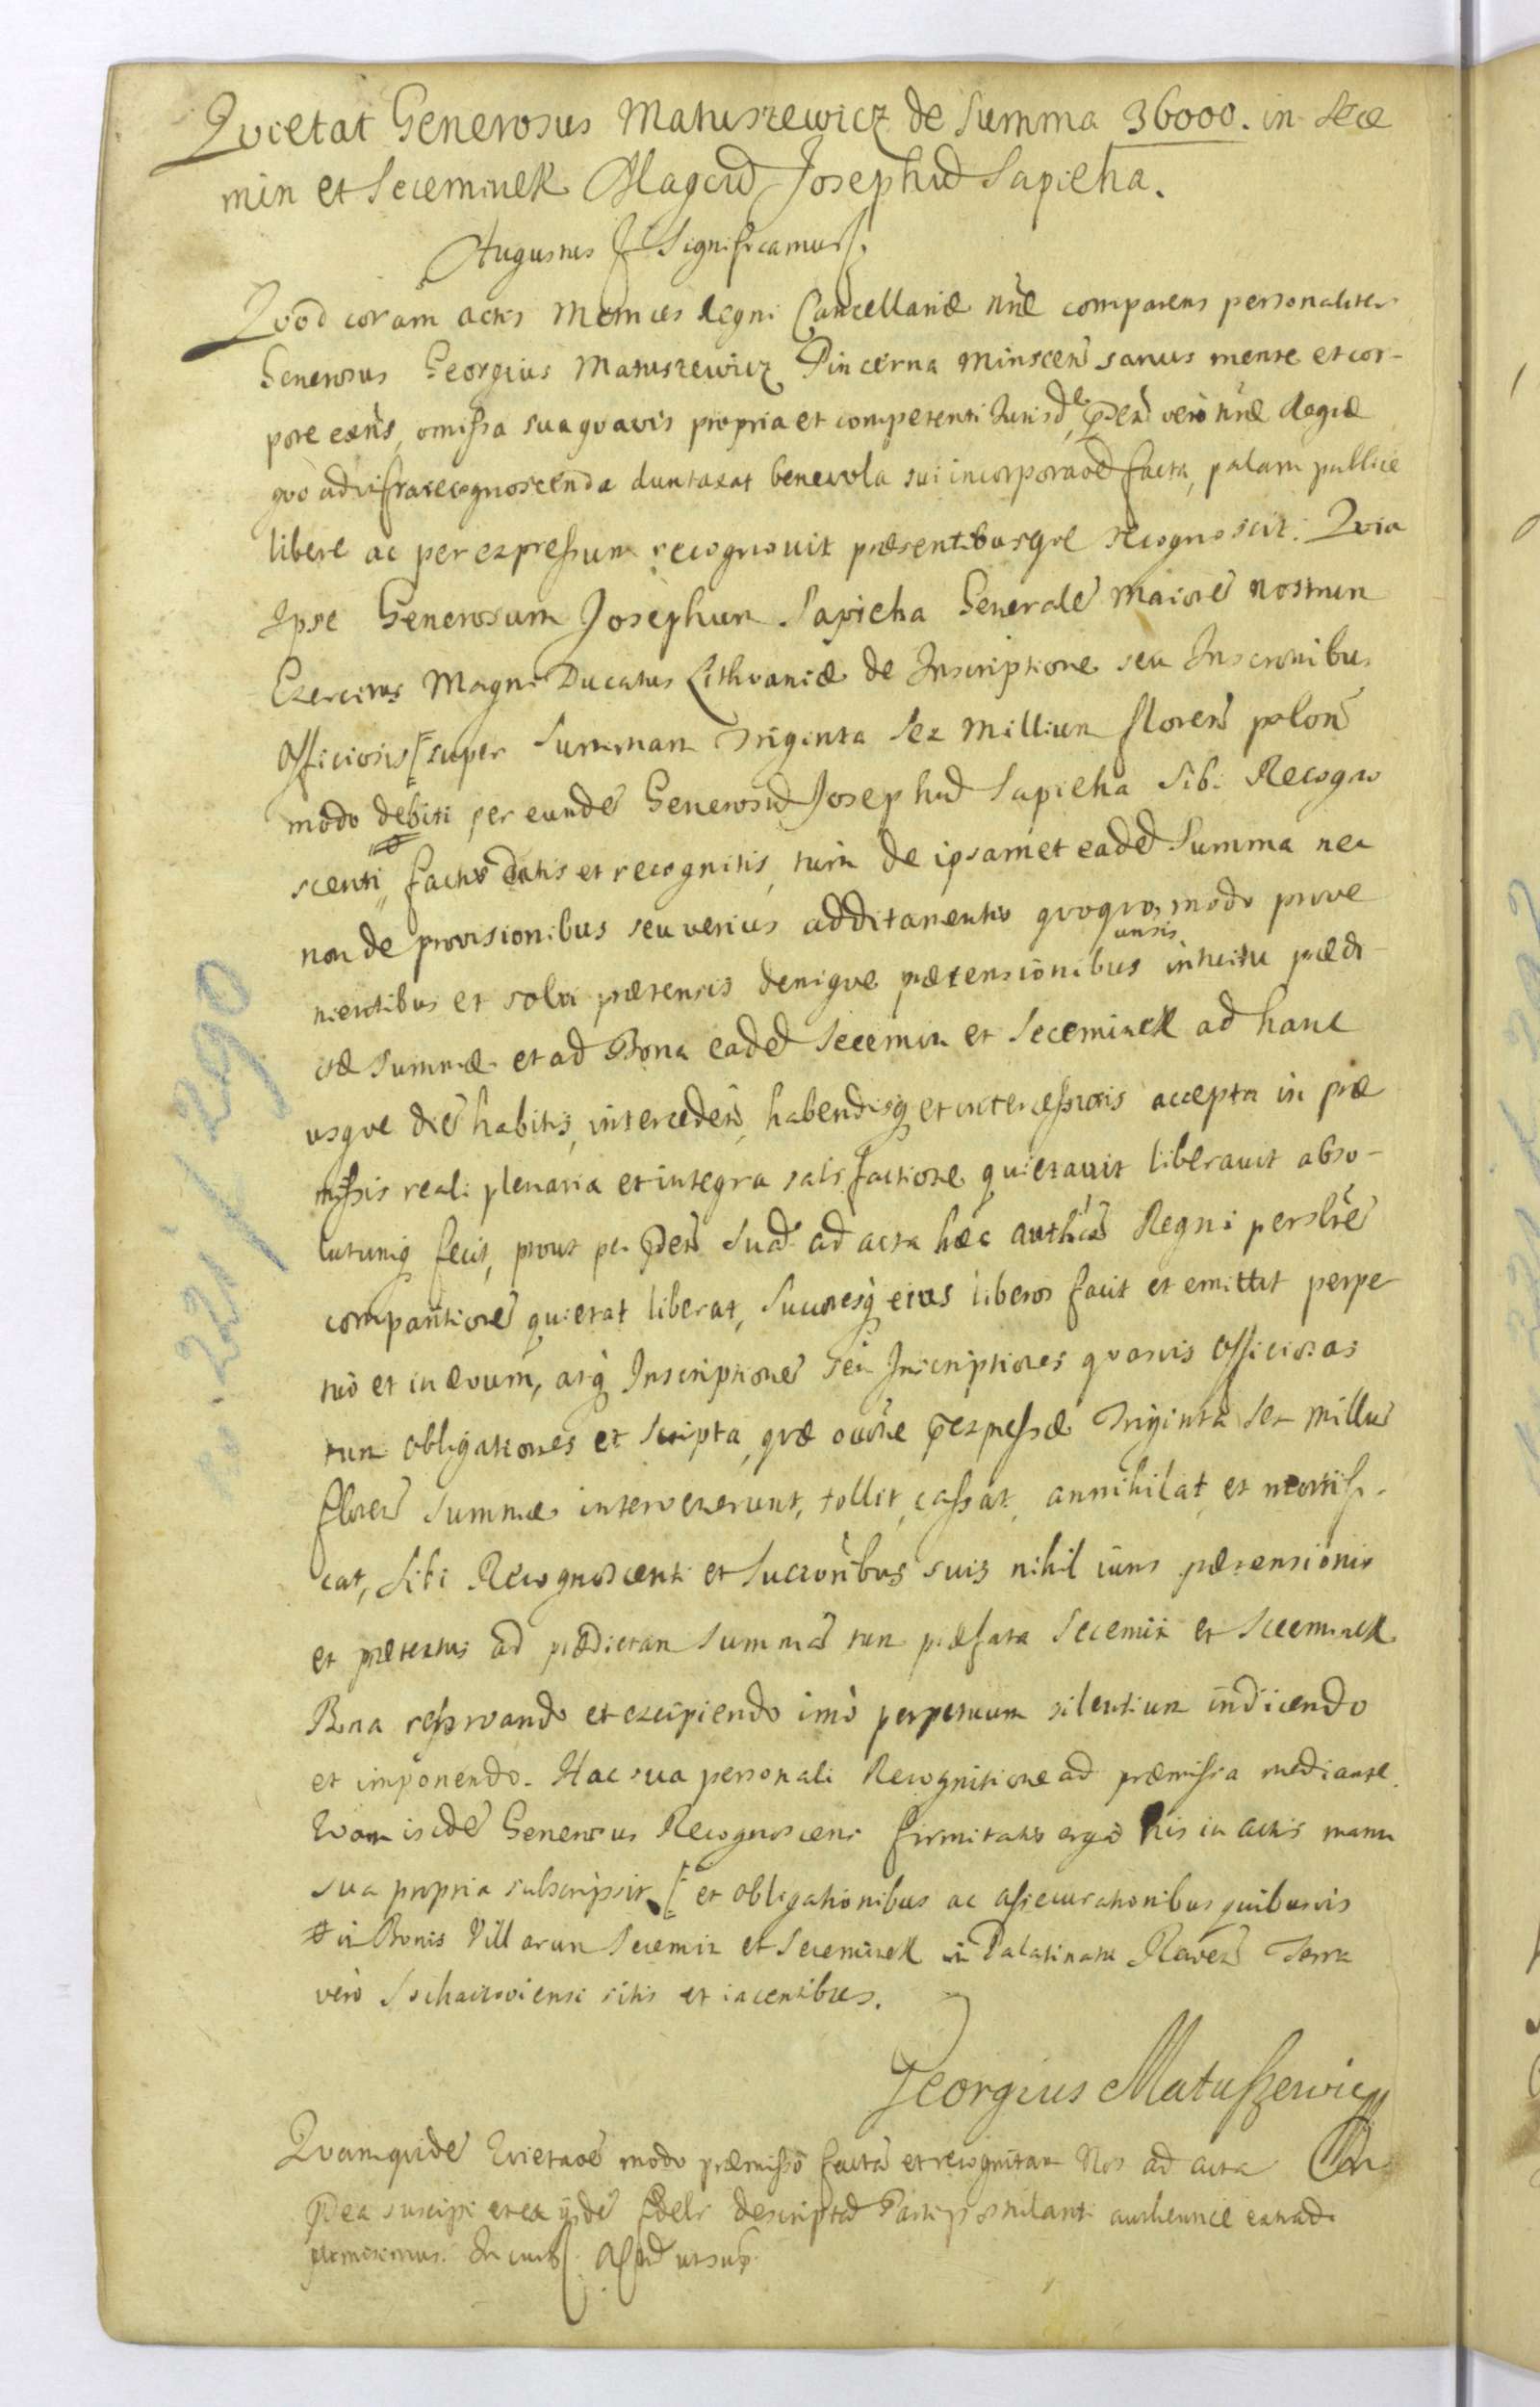 Qvietat Generosus Matuszewicz de Summa 36000. in Sece
min et Seceminek Magcũ Josephũ Sapieha.
Augustus Significamus
Qvod coram actis Metrices Regni Cancellariæ nr̃æ comparens personaliter
Generosus Georgius Matuszewicz Pincerna Minscen̄ sanus mente et cor-
pore exñs, omissa sua qvavis propria et competenti Jurisd̃e, vero nr̃æ Regiæ
qvo ad infra recognoscenda duntaxat benevola sui incorporaoẽ facta, palam publice
libere ac per expressum recognovit præsentibusqve recognoscit. Qvia
Ipse Generosum Josephum Sapieha Generalẽ Maiorẽ nostrum
Exercitus Magni Ducatus Lithvaniæ de Inscriptione seu Inscr̃onibus
officiosis [super Summam Triginta Sex Millium floren̄ polon̄
modo debiti per eundẽ Generosũ Josephũ Sapieha Sibi Recogno
scenti factis datis et recognitis, tum de ipsamet eadẽ Summa nec
non de provisionibus seu verius additamentis qvoqvo modo prove
nientibus et solvi prætensis deniqve prætensionibus intuitu prædi-
ctæ Summæ et ad Bona eadẽ Secemin et Seceminek ad hanc
usqve diẽ habitis, intercedeñ, habendisq̃ et intercessuris accepta in præ
missis reali plenaria et integra satisfactione qvietavit liberavit abso-
lutumq̃ fecit, prout per suã ad acta hæc authca Regni perslrẽ
comparitionẽ qvietat liberat, Succr̃esq̃ eius liberos facit et emittit perpe
tuo et in ævum, atq̃ Inscriptionẽ seu Inscriptiones qvasvis officiosas
tum obligationes et scripta, qvæ expressæ Triginta Sex Milliũ
floren̄ Summæ intervenerunt, tollit, cassat, annihilat, et mortifi-
cat, Sibi Recognoscenti et Succr̃oribus suis nihil iuris prætensionis
et prætextus ad prædictam Summã tum præfata Secemin et Seceminek
Bona reservando et excipiendo imò perpetuum silentium indicendo
et imponendo. Hac sua personali Recognitione ad præmissa mediante.
Qvam isdẽ Generosus Recognoscens firmitatis ergo his in actis manu
sua propria subscripsit. [et obligationibus ac assecurationibus qvibusvis
# in Bonis Villarum Secemin et Seceminek in Palatinatu Raven̄ Terra
vero Sochaczoviensi sitis et iacentibus.
Georgius Matuszewicz
Qvamqvidẽ Qvietaoẽ modo præmisso factã et recognitam Nos ad acta
suscipi et ex ijsdẽ descriptã Parti postulanti authentice extradi
permisimus. In cuius. ut sup̃.
No. 221 f 290